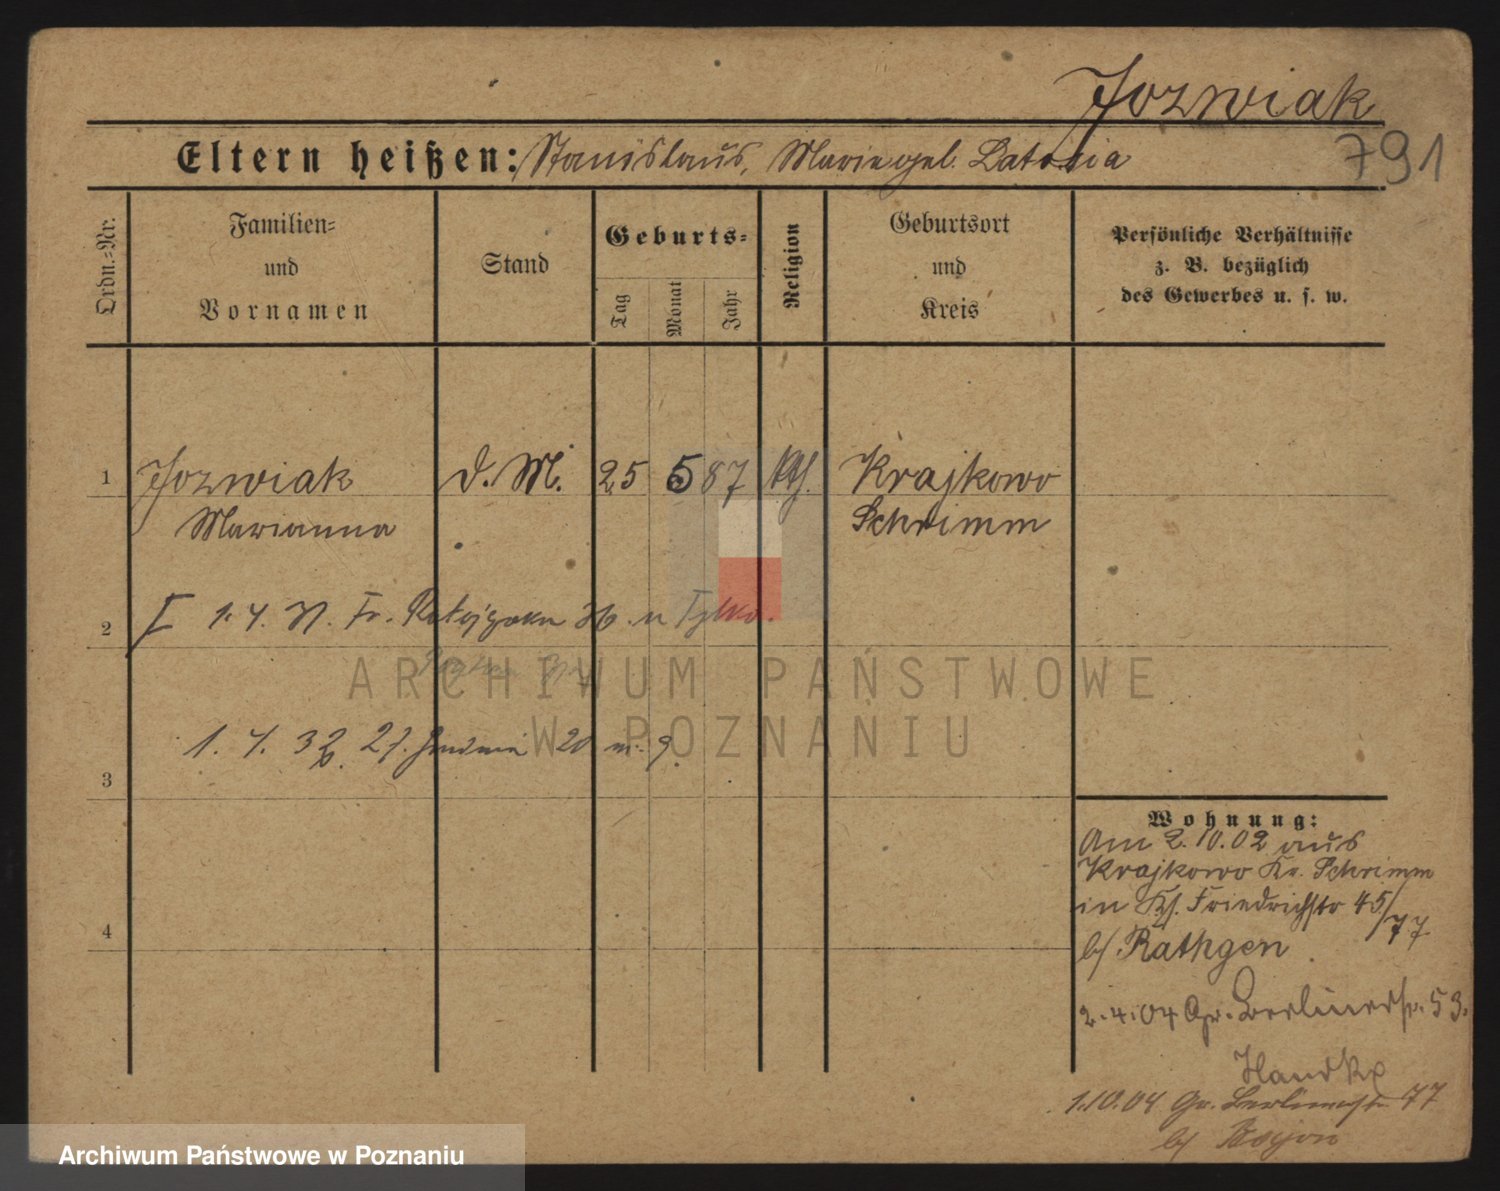 Jozwiak
791
Eltern heißen: Stanislaus, Marie geb. Latosia
Ordn.-Nr.
Familien-
und
Vornamen
Stand
Geburts-
Tag
Monat
Jahr
Religion
Geburtsort
und
Kreis
Persönliche Verhältnisse
z. B. bezüglich
des Gewerbes u. s. w.
1 Jozwiak d. M. 25 5 87 kth. Krajkowo
Marianna Schrimm
2 1. 4. Fr.
ARCHIWUM PAŃSTWOWE
W POZNANIU
1. 4. 20
3
Wohnung:
Am 2.10.02 aus
Krajkowo Kr. Schrimm
in Friedrichstr 45/77
b/ Rathgen
4
2.4.04 Gr. Berlinerstr. 53.
Handke
1.10.04 Gr. Berlinerstr 77
b/
Archiwum Państwowe w Poznaniu